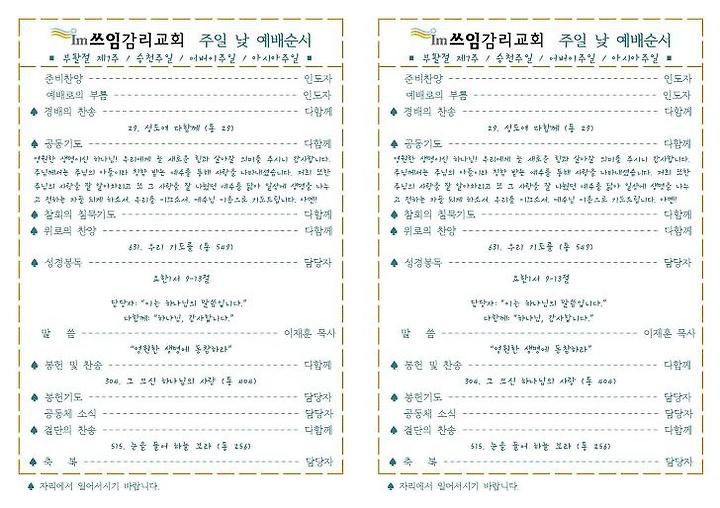 Im쓰임감리교회 주일 낮 예배순서
■ 부활절 제7주 / 승천주일 / 어버이주일 / 아시아주일 ■
준비찬양 인도자
예배로의 부름 인도자
♠ 경배의 찬송 다함께
29. 성도여 다함께 (통 29)
♠ 공동기도 다함께
영원한 생명이신 하나님! 우리에게 늘 새로운 힘과 살아갈 의미를 주시니 감사합니다.
주님께서는 주님의 아들이라 칭함 받는 예수를 통해 사랑을 나타내셨습니다. 저희 또한
주님의 사랑을 잘 알아차리고 또 그 사랑을 잘 나눴던 예수를 닮아 일상에 생명을 나누
고 전하는 자들 되게 하소서. 우리를 이끄소서. 예수님 이름으로 기도드립니다. 아멘!!
♠ 참회의 침묵기도 다함께
♠ 위로의 찬양 다함께
631. 우리 기도를 (통 549)
♠ 성경봉독 담당자
요한1서 9-13절
담당자: “이는 하나님의 말씀입니다.”
다함께: “하나님, 감사합니다.”
말 씀 이재훈 목사
“영원한 생명에 동참하라”
♠ 봉헌 및 찬송 다함께
304. 그 크신 하나님의 사랑 (통 404)
♠ 봉헌기도 담당자
공동체 소식 담당자
♠ 결단의 찬송 다함께
515. 눈을 들어 하늘 보라 (통 256)
♠ 축 복 담당자
♠ 자리에서 일어서시기 바랍니다.
Im쓰임감리교회 주일 낮 예배순서
■ 부활절 제7주 / 승천주일 / 어버이주일 / 아시아주일 ■
준비찬양 인도자
예배로의 부름 인도자
♠ 경배의 찬송 다함께
29. 성도여 다함께 (통 29)
♠ 공동기도 다함께
영원한 생명이신 하나님! 우리에게 늘 새로운 힘과 살아갈 의미를 주시니 감사합니다.
주님께서는 주님의 아들이라 칭함 받는 예수를 통해 사랑을 나타내셨습니다. 저희 또한
주님의 사랑을 잘 알아차리고 또 그 사랑을 잘 나눴던 예수를 닮아 일상에 생명을 나누
고 전하는 자들 되게 하소서. 우리를 이끄소서. 예수님 이름으로 기도드립니다. 아멘!!
♠ 참회의 침묵기도 다함께
♠ 위로의 찬양 다함께
631. 우리 기도를 (통 549)
♠ 성경봉독 담당자
요한1서 9-13절
담당자: “이는 하나님의 말씀입니다.”
다함께: “하나님, 감사합니다.”
말 씀 이재훈 목사
“영원한 생명에 동참하라”
♠ 봉헌 및 찬송 다함께
304. 그 크신 하나님의 사랑 (통 404)
♠ 봉헌기도 담당자
공동체 소식 담당자
♠ 결단의 찬송 다함께
515. 눈을 들어 하늘 보라 (통 256)
♠ 축 복 담당자
♠ 자리에서 일어서시기 바랍니다.